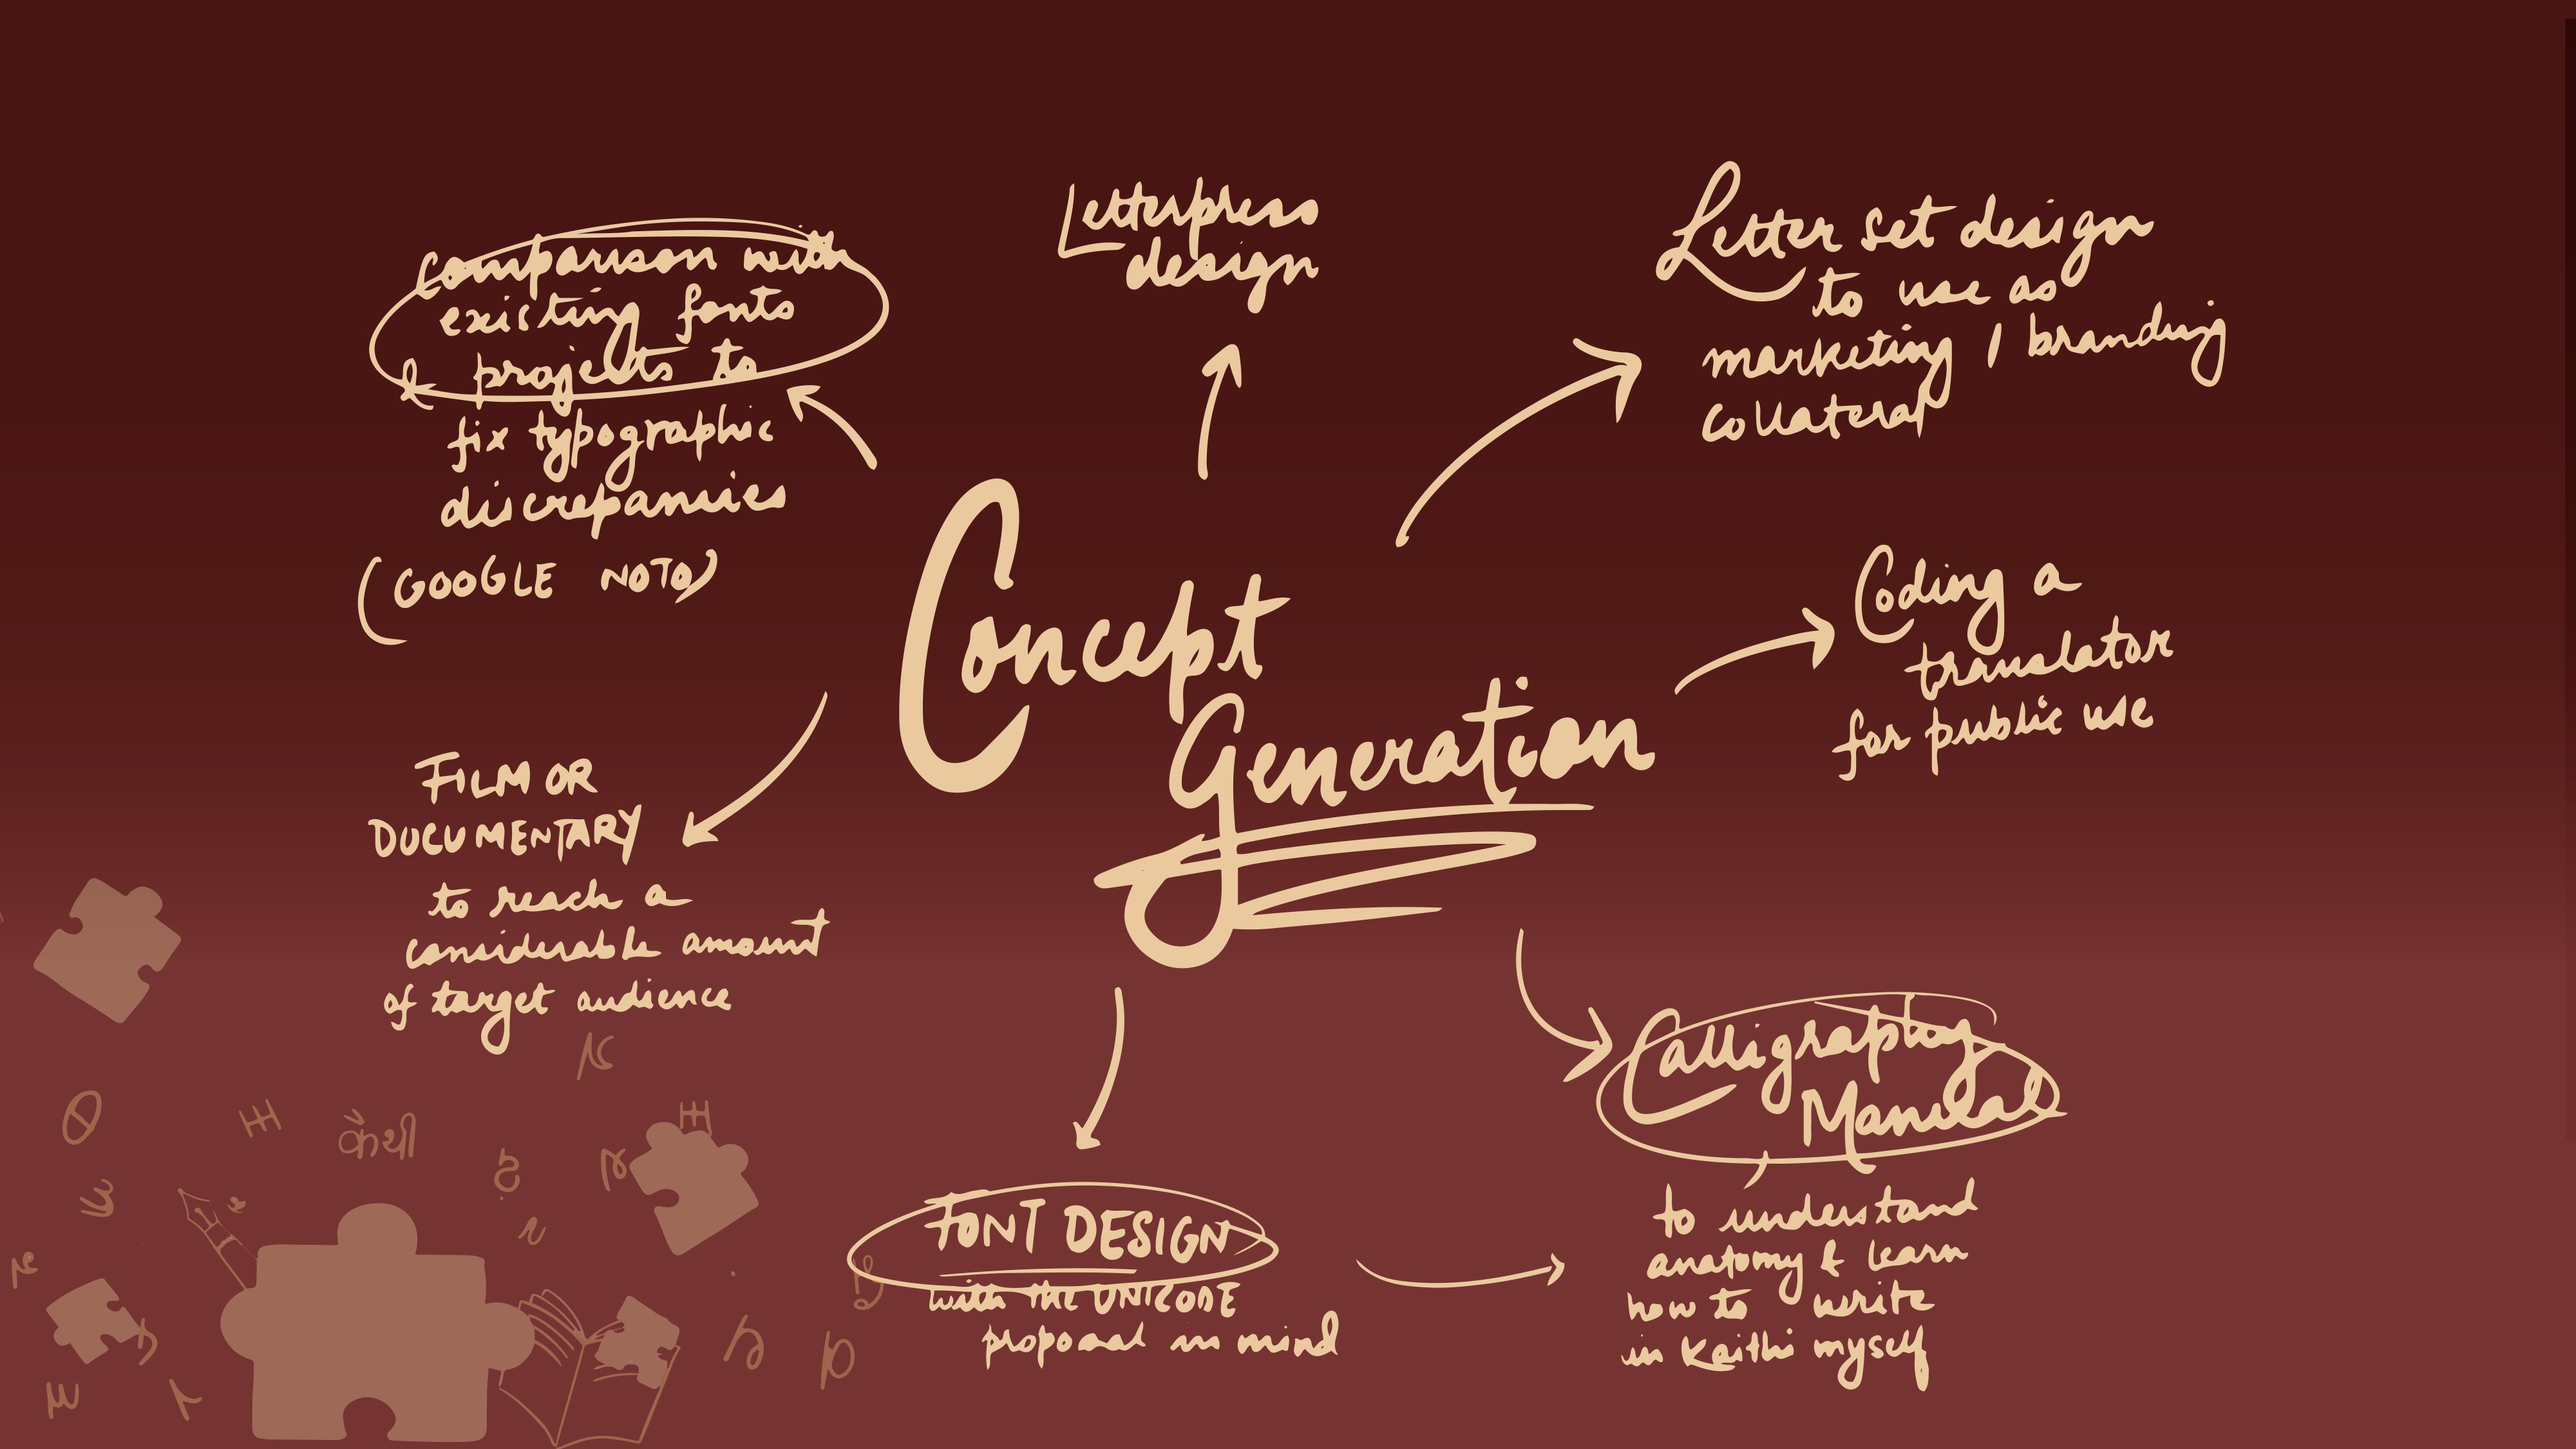 Comparison with
existing fonts
& projects to
fix typographic
discrepancies
(GOOGLE NOTO)
Letterpress
design
Letter set design
to use as
marketing / branding
collateral
Concept
Generation
Coding a
translator
for public use
FILM OR
DOCUMENTARY
to reach a
considerable amount
of target audience
FONT DESIGN
with THE UNICODE
proposal in mind
Calligraphy
Manual
to understand
anatomy & learn
how to write
in Kaithi myself
कैथी